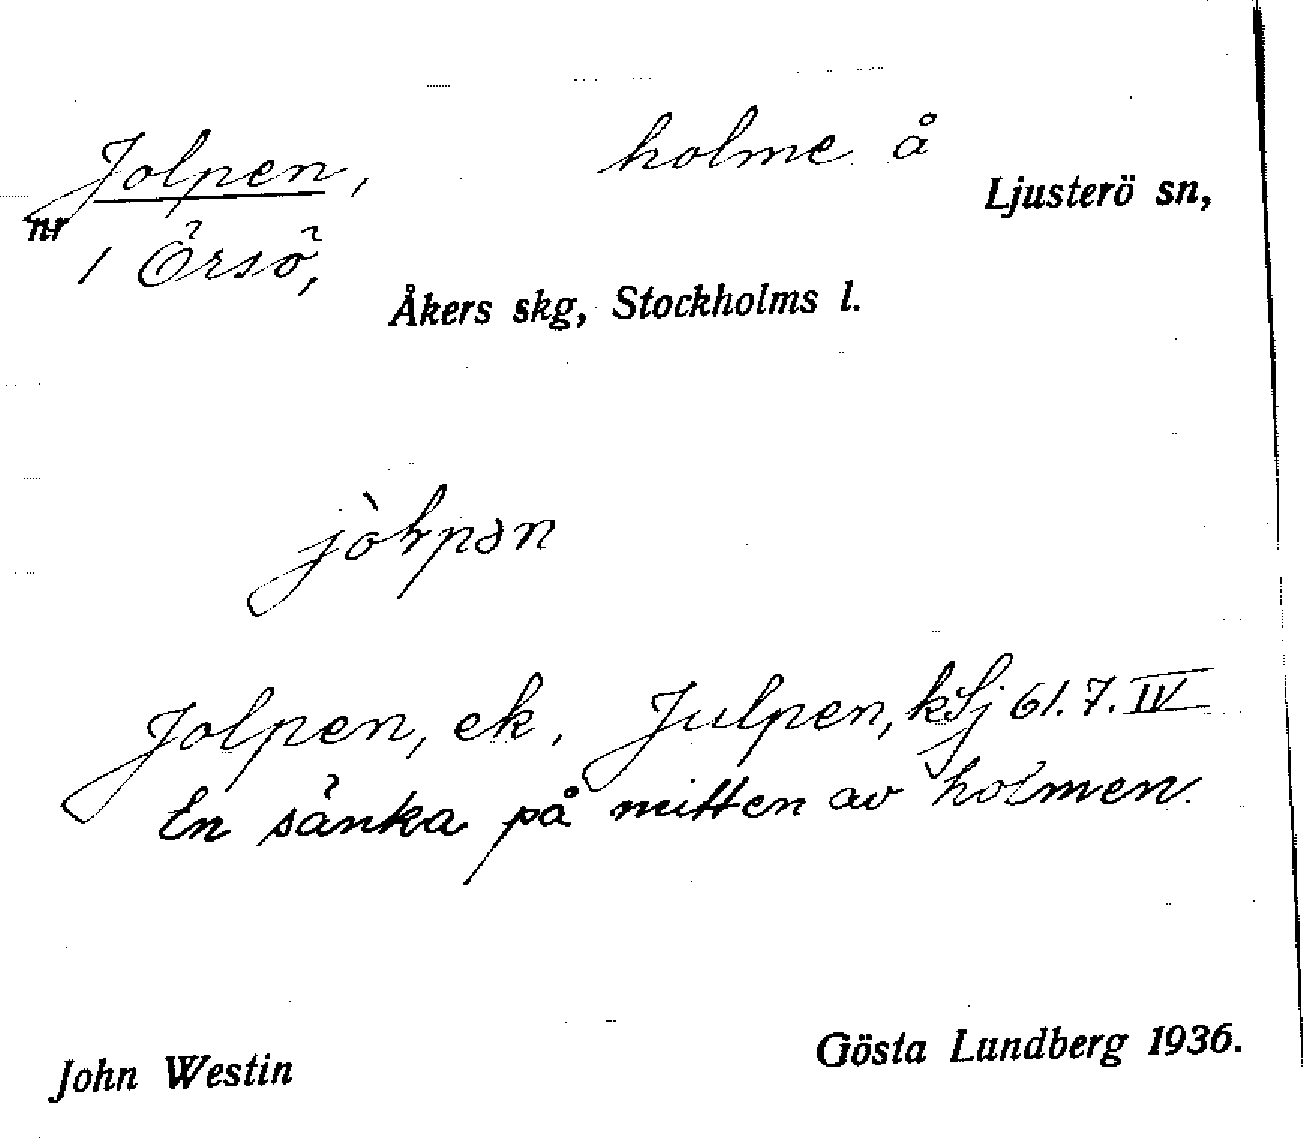 Jolpen, holme å
Ljusterö sn,
nr
1 Örsö,
Åkers skg, Stockholms l.
Jolpen, ek. Julpen, k Lj 61. 7. IV
En sänka på mitten av holmen.
John Westin Gösta Lundberg 1936.